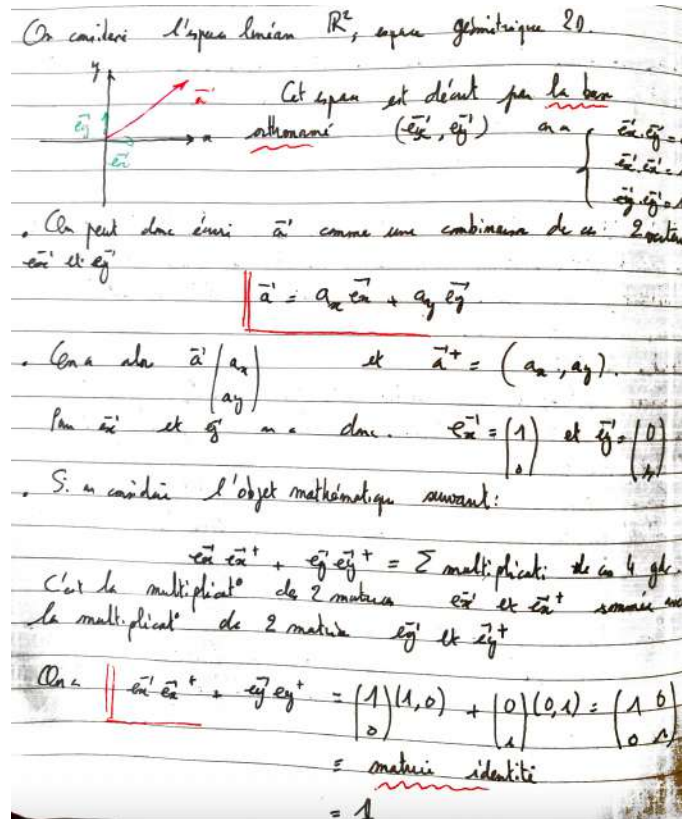 On considère l'espace linéaire ℝ², espace géométrique 2D.
y
a⃗ Cet espace est décrit par la base
e⃗y x orthonormé (e⃗x, e⃗y) on a { e⃗x.e⃗y =
e⃗x e⃗x.e⃗x =
e⃗y.e⃗y = 1
. On peut donc écrire a⃗ comme une combinaison de ces 2
e⃗x et e⃗y
a⃗ = ax e⃗x + ay e⃗y
. On a alors a⃗ (ax et a⃗⁺ = (ax, ay).
ay)
Pour e⃗x et e⃗y on a donc. e⃗x = (1 et e⃗y = (0
0) 1)
. Si on considère l'objet mathématique suivant:
e⃗x e⃗x⁺ + e⃗y e⃗y⁺ = Σ multiplicati de ces 4
C'est la multiplicat° des 2 matrices e⃗x et e⃗x⁺ sommée
la multiplicat° de 2 matrice e⃗y et e⃗y⁺
On a e⃗x e⃗x⁺ + e⃗y ey⁺ = (1 (1, 0) + (0 (0, 1) = (1 0
0) 1) 0 1)
= matrice identité
= 1